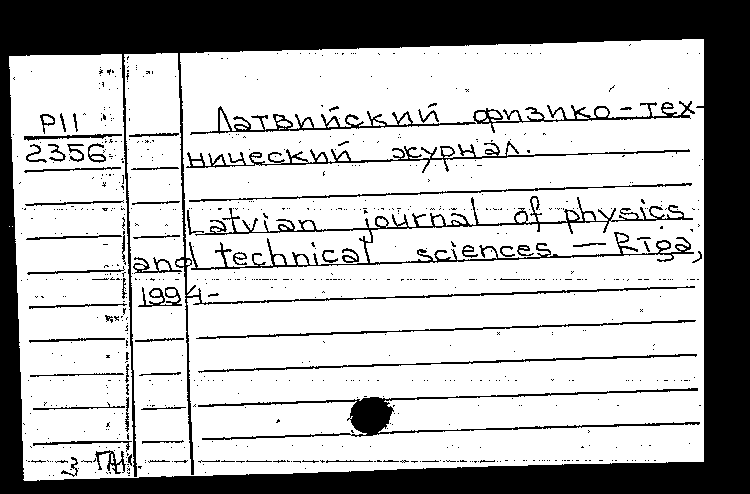 P11
2356
Латвийский физико-тех-
нический журнал.
Latvian journal of physics
and technical sciences. — Rīga,
1994-